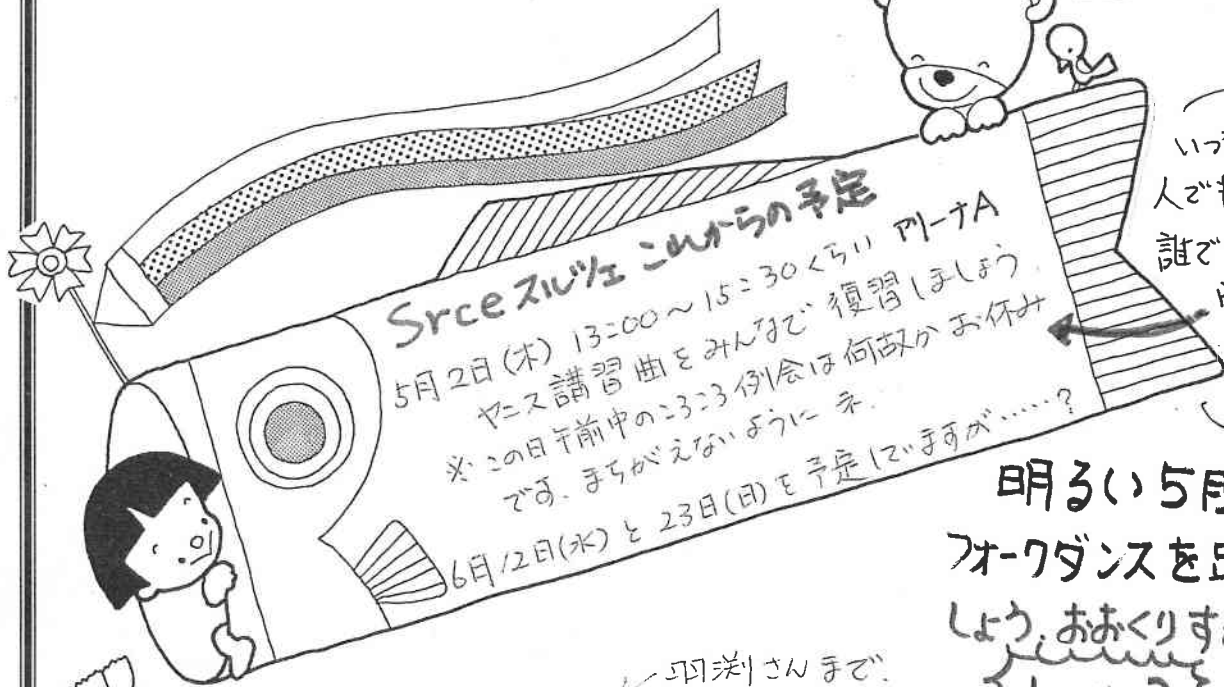 Srce スルツェ これからの予定
5月2日(木) 13:00～15:30くらい アリーナA
ヤニス講習曲をみんなで復習しましょう.
※この日午前中のころころ例会は何故かお休み
です. まちがえないようにネ.
6月12日(水)と23日(日)を予定していますが……?
いつ
人で
誰で
明るい5月
フォークダンスを
しょう. おおくりす
羽渕さんまで.